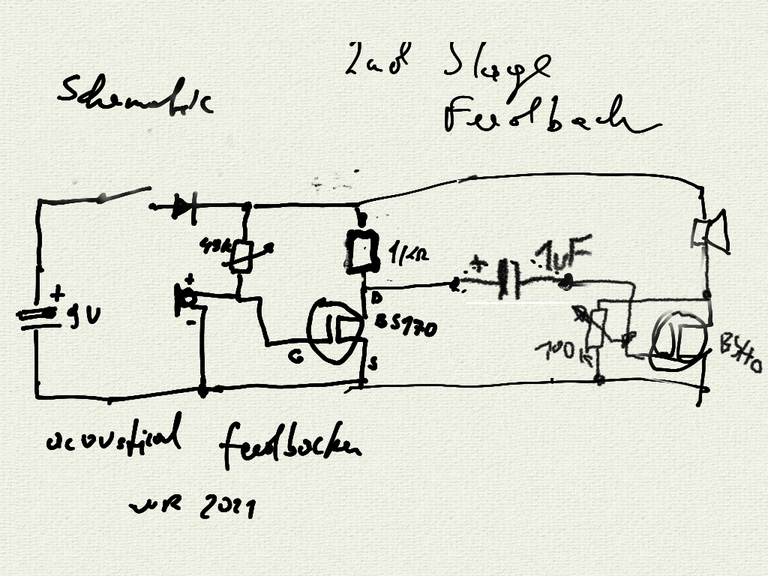 2nd Stage
Schematic
Feedback
+
9V
+
-
1KΩ
D
BS170
G
S
+
1uF
100K
BS170
acoustical feedbacker
WR 2021